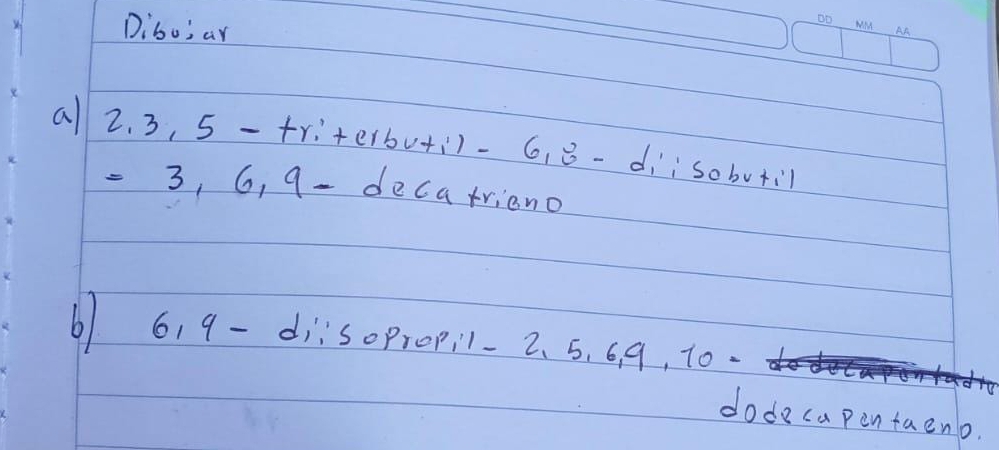 DD MM AA
Dibujar
a) 2,3,5 - triterbutil - 6,8 - diisobutil
= 3,6,9 - decatrieno
b) 6,9 - diisopropil - 2,5,6,9,10 -
dodecapentaeno.